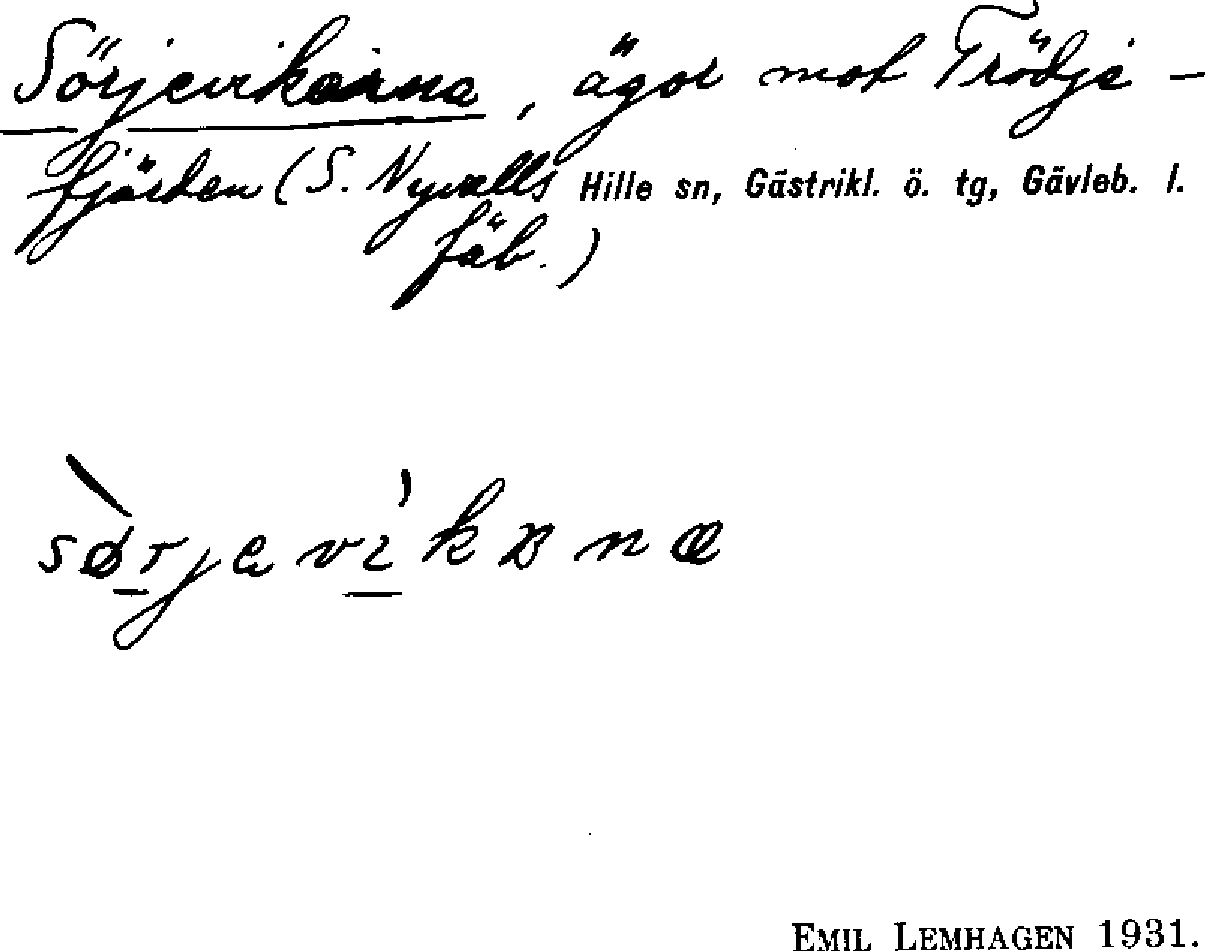 Sörjevikarna, ägor mot Trödje-
fjärden (S. Nyvalls Hille sn, Gästrikl. ö. tg, Gävleb. l.
fäb.)
EMIL LEMHAGEN 1931.